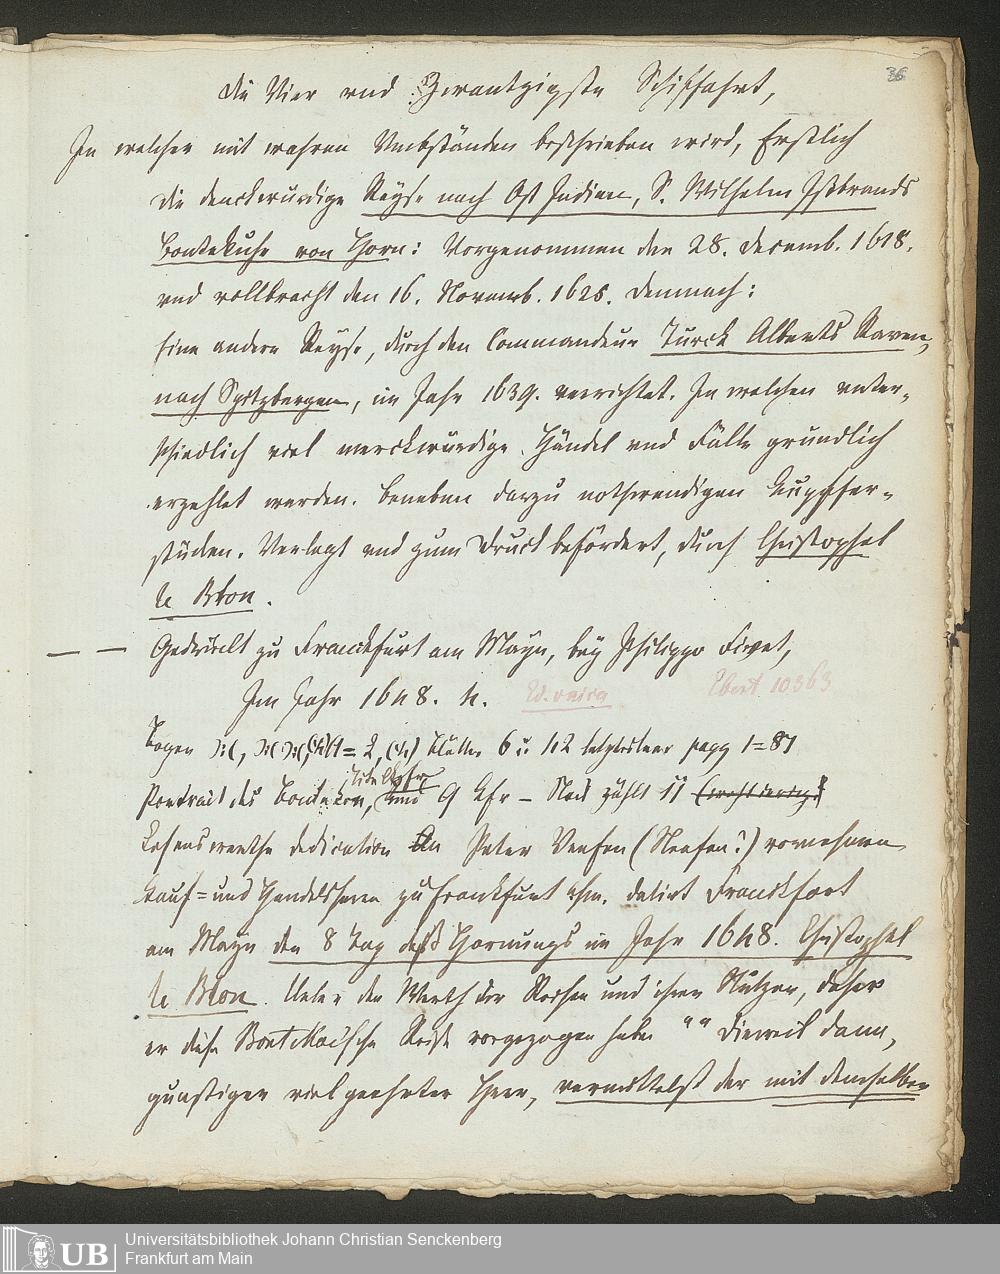 36
Die Vier und Zwantzigste Schiffahrt,
In welcher mit wahren Umbständen beschrieben wird, Erstlich
die denckwürdige Reyse nach Ost Indien, S. Wilhelm Issbrands
Bontekuhe von Horn: Vorgenommen den 28. Decemb. 1618.
und vollbracht den 16. Novemb. 1625. Demnach:
Eine andere Reyse, durch den Commandeur Turck Alberts Raven,
nach Spitzbergen, im Jahr 1639. verrichtet. In welchen unter-
schiedlich viel merckwürdige Händel und Fälle gründlich
erzehlet werden. Beneben darzu nothwendigen Kupffer-
stücken. Verlegt und zum Druck befördert, durch Christophel
le Blon.
— — Gedruckt zu Franckfurt am Mayn, bey Philippo Fivet,
Im Jahr 1648. 4.
Ed. unica
Ebert 10363
Bogen A = 2, (4) Blätter 6 u. 1:2 pagg 1=87
Portrait des Bontekou, Titelkpfr und 9 Kfr – Nach zählt 11
Lesenswerthe Dedication An Peter Veefen (Neefen?) vornehmen
Kauf= und Handelsherrn zu Frankfurt a/m. datirt Franckfort
am Mayn den 8 Tag deß Hornungs im Jahr 1648. Christophel
le Blon. Ueber den Werth der Reisen und ihren Nutzen, daher
er diese Reise vorgezogen habe " " Dieweil dann,
günstiger viel geehrter Herr, vermittelst der mit demselben
Universitätsbibliothek Johann Christian Senckenberg
UB Frankfurt am Main